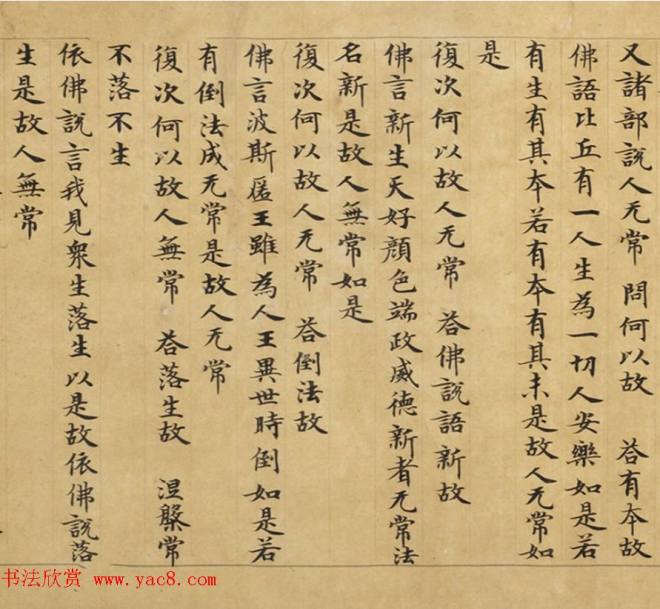 又諸部說人无常 問何以故 荅有夲故
佛語比丘有一人生為一切人安樂如是若
有生有其夲若有夲有其末是故人无常如
是
復次何以故人无常 荅佛說語新故
佛言新生天好顏色端政威德新者无常法
名新是故人無常如是
復次何以故人无常 荅倒法故
佛言波斯匿王雖為人王異世時倒如是若
有倒法成无常是故人无常
復次何以故人無常 荅落生故 涅槃常
不落不生
依佛說言我見衆生落生以是故依佛說落
生是故人無常
书法欣赏 www.yac8.com